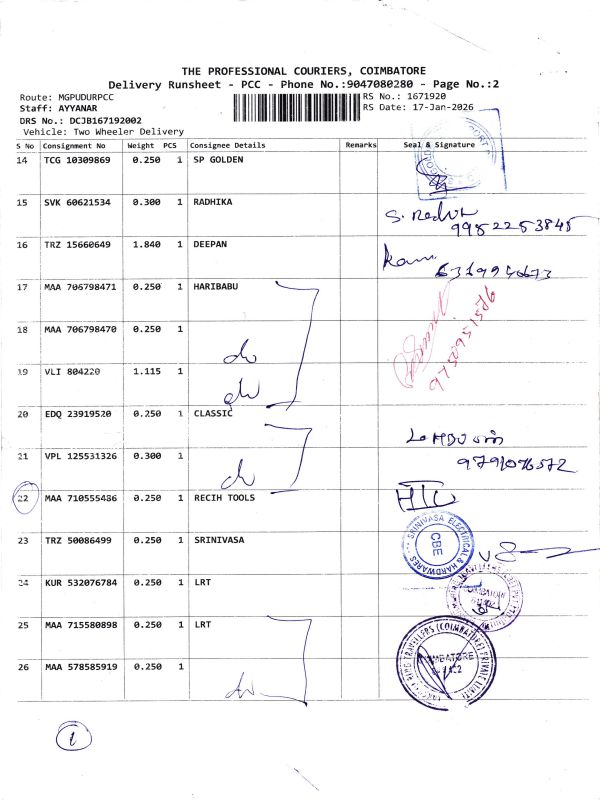 THE PROFESSIONAL COURIERS, COIMBATORE
Delivery Runsheet - PCC - Phone No.:9047080280 - Page No.:2
Route: MGPUDURPCC
Staff: AYYANAR
DRS No.: DCJB167192002
Vehicle: Two Wheeler Delivery
RS No.: 1671920
RS Date: 17-Jan-2026
S No Consignment No Weight PCS Consignee Details Remarks Seal & Signature
14 TCG 10309869 0.250 1 SP GOLDEN
15 SVK 60621534 0.300 1 RADHIKA
9952253845
16 TRZ 15660649 1.840 1 DEEPAN
17 MAA 706798471 0.250 1 HARIBABU
18 MAA 706798470 0.250 1
do
19 VLI 804220 1.115 1
do
20 EDQ 23919520 0.250 1 CLASSIC
21 VPL 125531326 0.300 1
do
9791076572
22 MAA 710555436 0.250 1 RECIH TOOLS
23 TRZ 50086499 0.250 1 SRINIVASA
SRINIVASA ELECTRICAL & HARDWARES
CBE
24 KUR 532076784 0.250 1 LRT
25 MAA 715580898 0.250 1 LRT
26 MAA 578585919 0.250 1
do
1